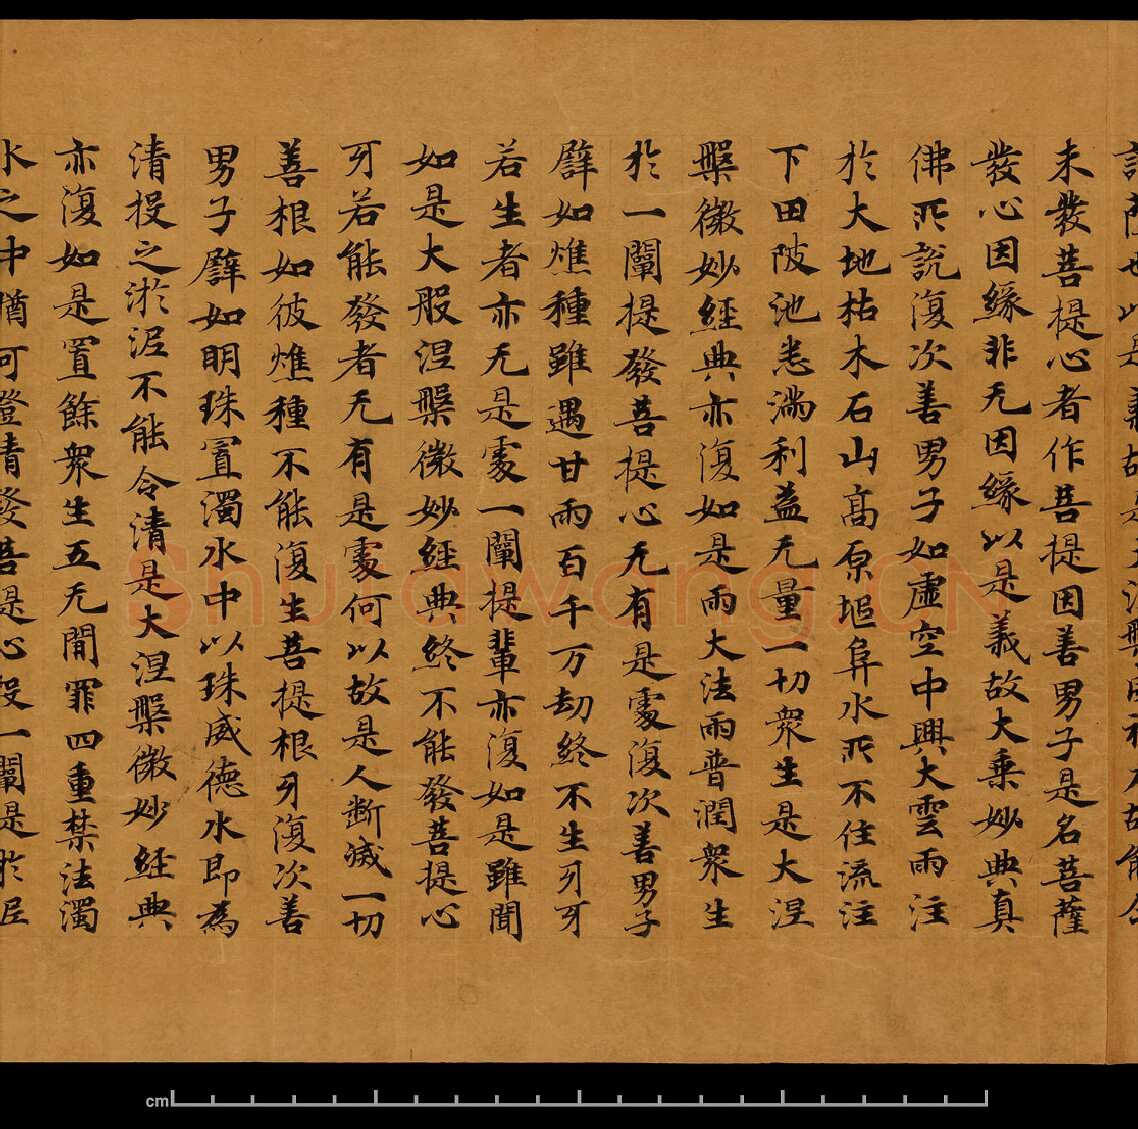 未發菩提心者作菩提因善男子是名菩薩
發心因緣非无因緣以是義故大乘妙典真
佛所說復次善男子如虛空中興大雲雨注
於大地枯木石山高原塠阜水所不住流注
下田陂池悉滿利益无量一切衆生是大涅
槃微妙經典亦復如是雨大法雨普潤衆生
於一闡提發菩提心无有是處復次善男子
譬如燋種雖遇甘雨百千万劫終不生牙牙
若生者亦无是處一闡提輩亦復如是雖聞
如是大般涅槃微妙經典終不能發菩提心
牙若能發者无有是處何以故是人斷滅一切
善根如彼燋種不能復生菩提根牙復次善
男子譬如明珠置濁水中以珠威德水即為
清投之淤泥不能令清是大涅槃微妙經典
亦復如是置餘衆生五无間罪四重禁法濁
水之中猶可澄清發菩提心投一闡提於泥
Shufawang.CN
cm